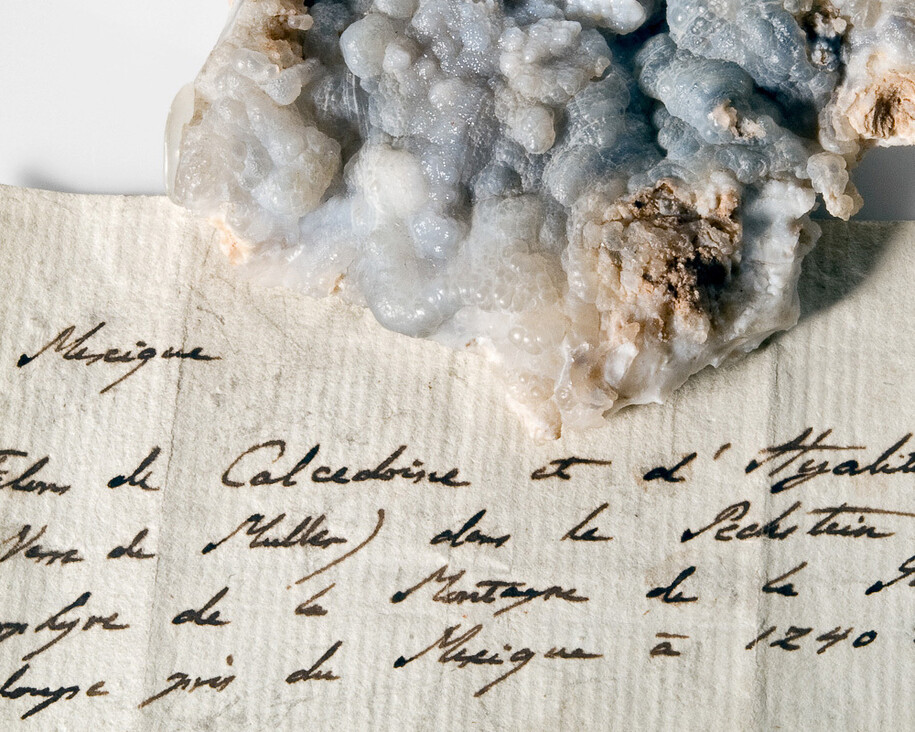 Mexique
de Calcedoine et d'Hyalit
Verre de Muller) dans le Pechstein
de la Montagne de la
pris du Mexique à 1240